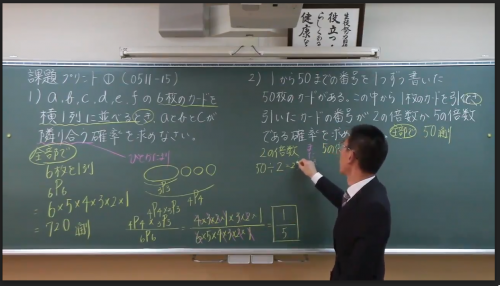 健康な
役立つ
課題プリント① (0511-15)
1) a,b,c,d,e,fの6枚のカードを
横1列に並べるとき aとbとcが
隣り合う確率を求めなさい。
全部で
ひとかたまり
6枚を1列
6P6
= 6×5×4×3×2×1
= 720通り
3P3
4P4
4P4×3P3
4P4×3P3
6P6
= 4×3×2×1×3×2×1
6×5×4×3×2×1
= 1
5
2) 1から50までの番号を1つずつ書いた
50枚のカードがある。この中から1枚のカードを引くとき
引いたカードの番号が2の倍数か5の倍数
である確率を求め
全部で 50通り
2の倍数
5の
50÷2